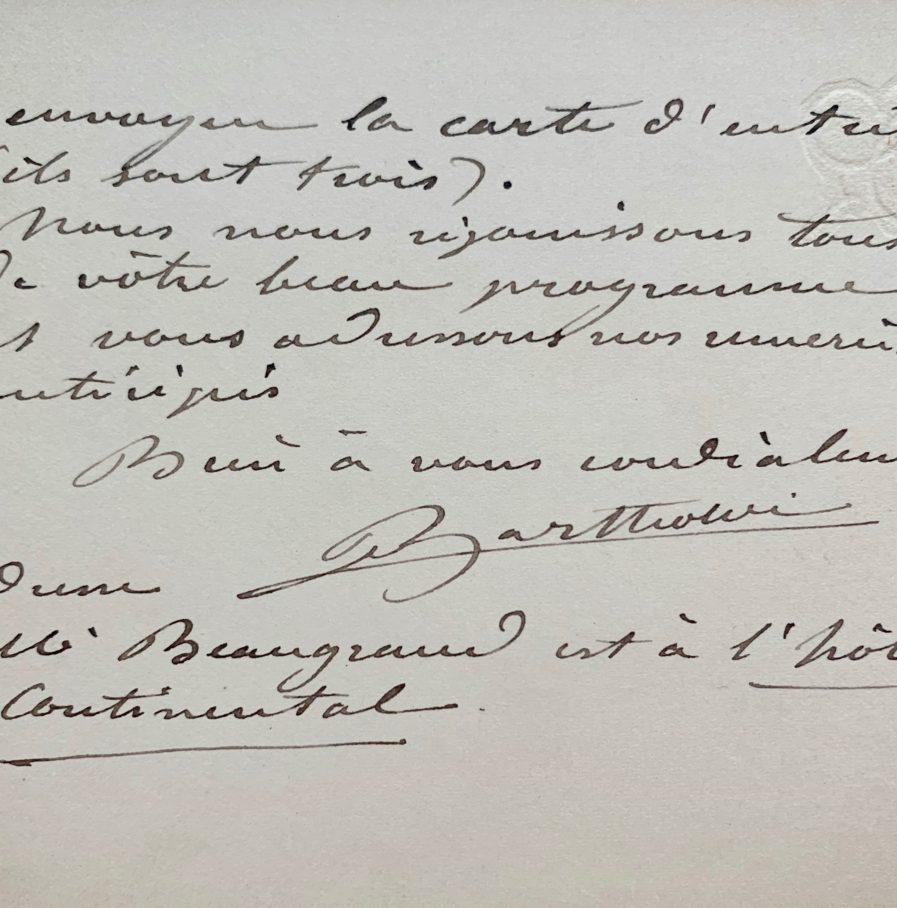 envoyer la carte d'entré
(ils sont trois).
Nous nous réjouissons tous
de vôtre beau programme
et vous adressons nos remerci
anticipés
Bien à vous cordialem
Bartholdi
dresse
Beaugrand est à l'hôt
Continental